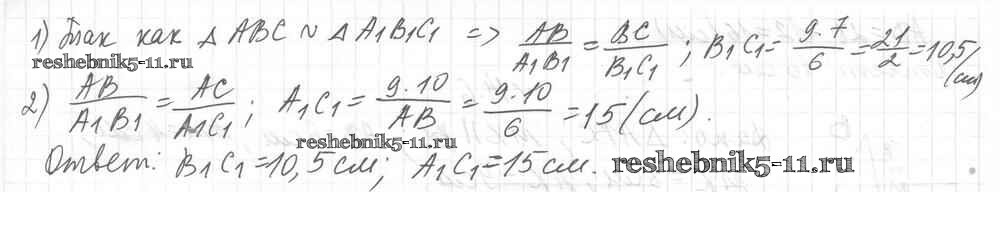 1) Так как △ABC ~ △A1B1C1 => AB/A1B1 = BC/B1C1; B1C1 = 9·7/6 = 21/2 = 10,5 (см)
reshebnik5-11.ru
2) AB/A1B1 = AC/A1C1; A1C1 = 9·10/AB = 9·10/6 = 15 (см).
reshebnik5-11.ru
Ответ: B1C1 = 10,5 см; A1C1 = 15 см.
reshebnik5-11.ru